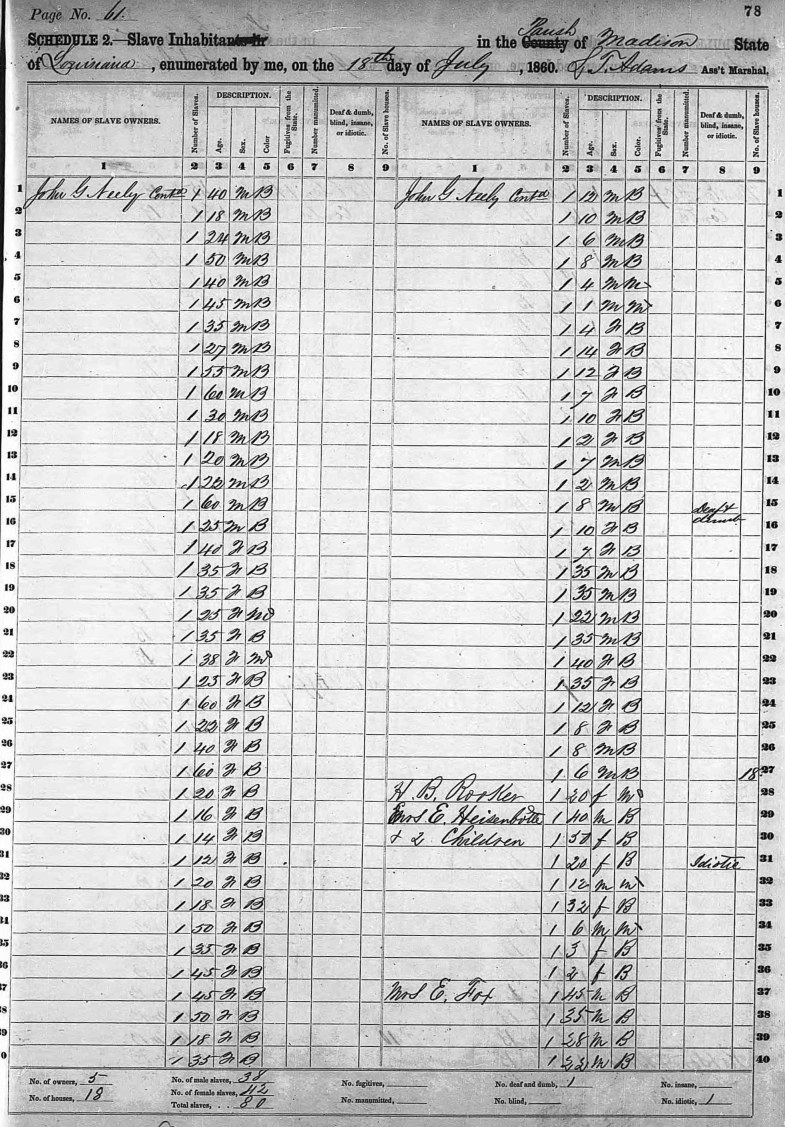 Page No. 61. 78
SCHEDULE 2.—Slave Inhabitants in in the County Parish of Madison State
of Louisiana, enumerated by me, on the 18th day of July, 1860. S. T. Adams Ass't Marshal.
NAMES OF SLAVE OWNERS. Number of Slaves. DESCRIPTION. Age. Sex. Color Fugitives from the State. Number manumitted. Deaf & dumb, blind, insane, or idiotic. No. of Slave houses. NAMES OF SLAVE OWNERS. Number of Slaves. DESCRIPTION. Age. Sex. Color. Fugitives from the State. Number manumitted. Deaf & dumb, blind, insane, or idiotic. No. of Slave houses.
1 2 3 4 5 6 7 8 9 1 2 3 4 5 6 7 8 9
1 John G Neely Contd 1 40 M B John G Neely Contd 1 12 M B 1
2 1 18 M B 1 10 M B 2
3 1 24 M B 1 6 M B 3
4 1 50 M B 1 8 M B 4
5 1 40 M B 1 4 M M 5
6 1 45 M B 1 1 M M 6
7 1 35 M B 1 4 F B 7
8 1 27 M B 1 14 F B 8
9 1 55 M B 1 12 F B 9
10 1 60 M B 1 7 F B 10
11 1 30 M B 1 10 F B 11
12 1 18 M B 1 2 F B 12
13 1 20 M B 1 7 M B 13
14 1 22 M B 1 2 M B 14
15 1 60 M B 1 8 M B Deaf & dumb 15
16 1 25 M B 1 10 F B 16
17 1 40 F B 1 7 F B 17
18 1 35 F B 1 35 M B 18
19 1 35 F B 1 35 M B 19
20 1 25 F M 1 22 M B 20
21 1 35 F B 1 35 M B 21
22 1 38 F M 1 40 F B 22
23 1 25 F B 1 35 F B 23
24 1 60 F B 1 12 F B 24
25 1 22 F B 1 8 F B 25
26 1 40 F B 1 8 M B 26
27 1 60 F B 1 6 M B 18 27
28 1 20 F B H. B. Rooker 1 20 f M 28
29 1 16 F B Mrs E. Heisenbottle 1 40 M B 29
30 1 14 F B & 2 Children 1 50 f B 30
31 1 12 F B 1 20 f B Idiotic 31
32 1 20 F B 1 12 M M 32
33 1 18 F B 1 32 f B 33
34 1 50 F B 1 6 M M 34
35 1 35 F B 1 3 f B 35
36 1 45 F B 1 2 f B 36
37 1 45 F B Mrs E. Fox 1 45 M B 37
38 1 50 F B 1 35 M B 38
39 1 18 F B 1 28 M B 39
0 1 35 F B 1 22 M B 40
No. of owners, 5 No. of male slaves, 38 No. fugitives, No. deaf and dumb, 1 No. insane,
No. of houses, 18 No. of female slaves, 42 No. manumitted, No. blind, No. idiotic, 1
Total slaves, . . 80